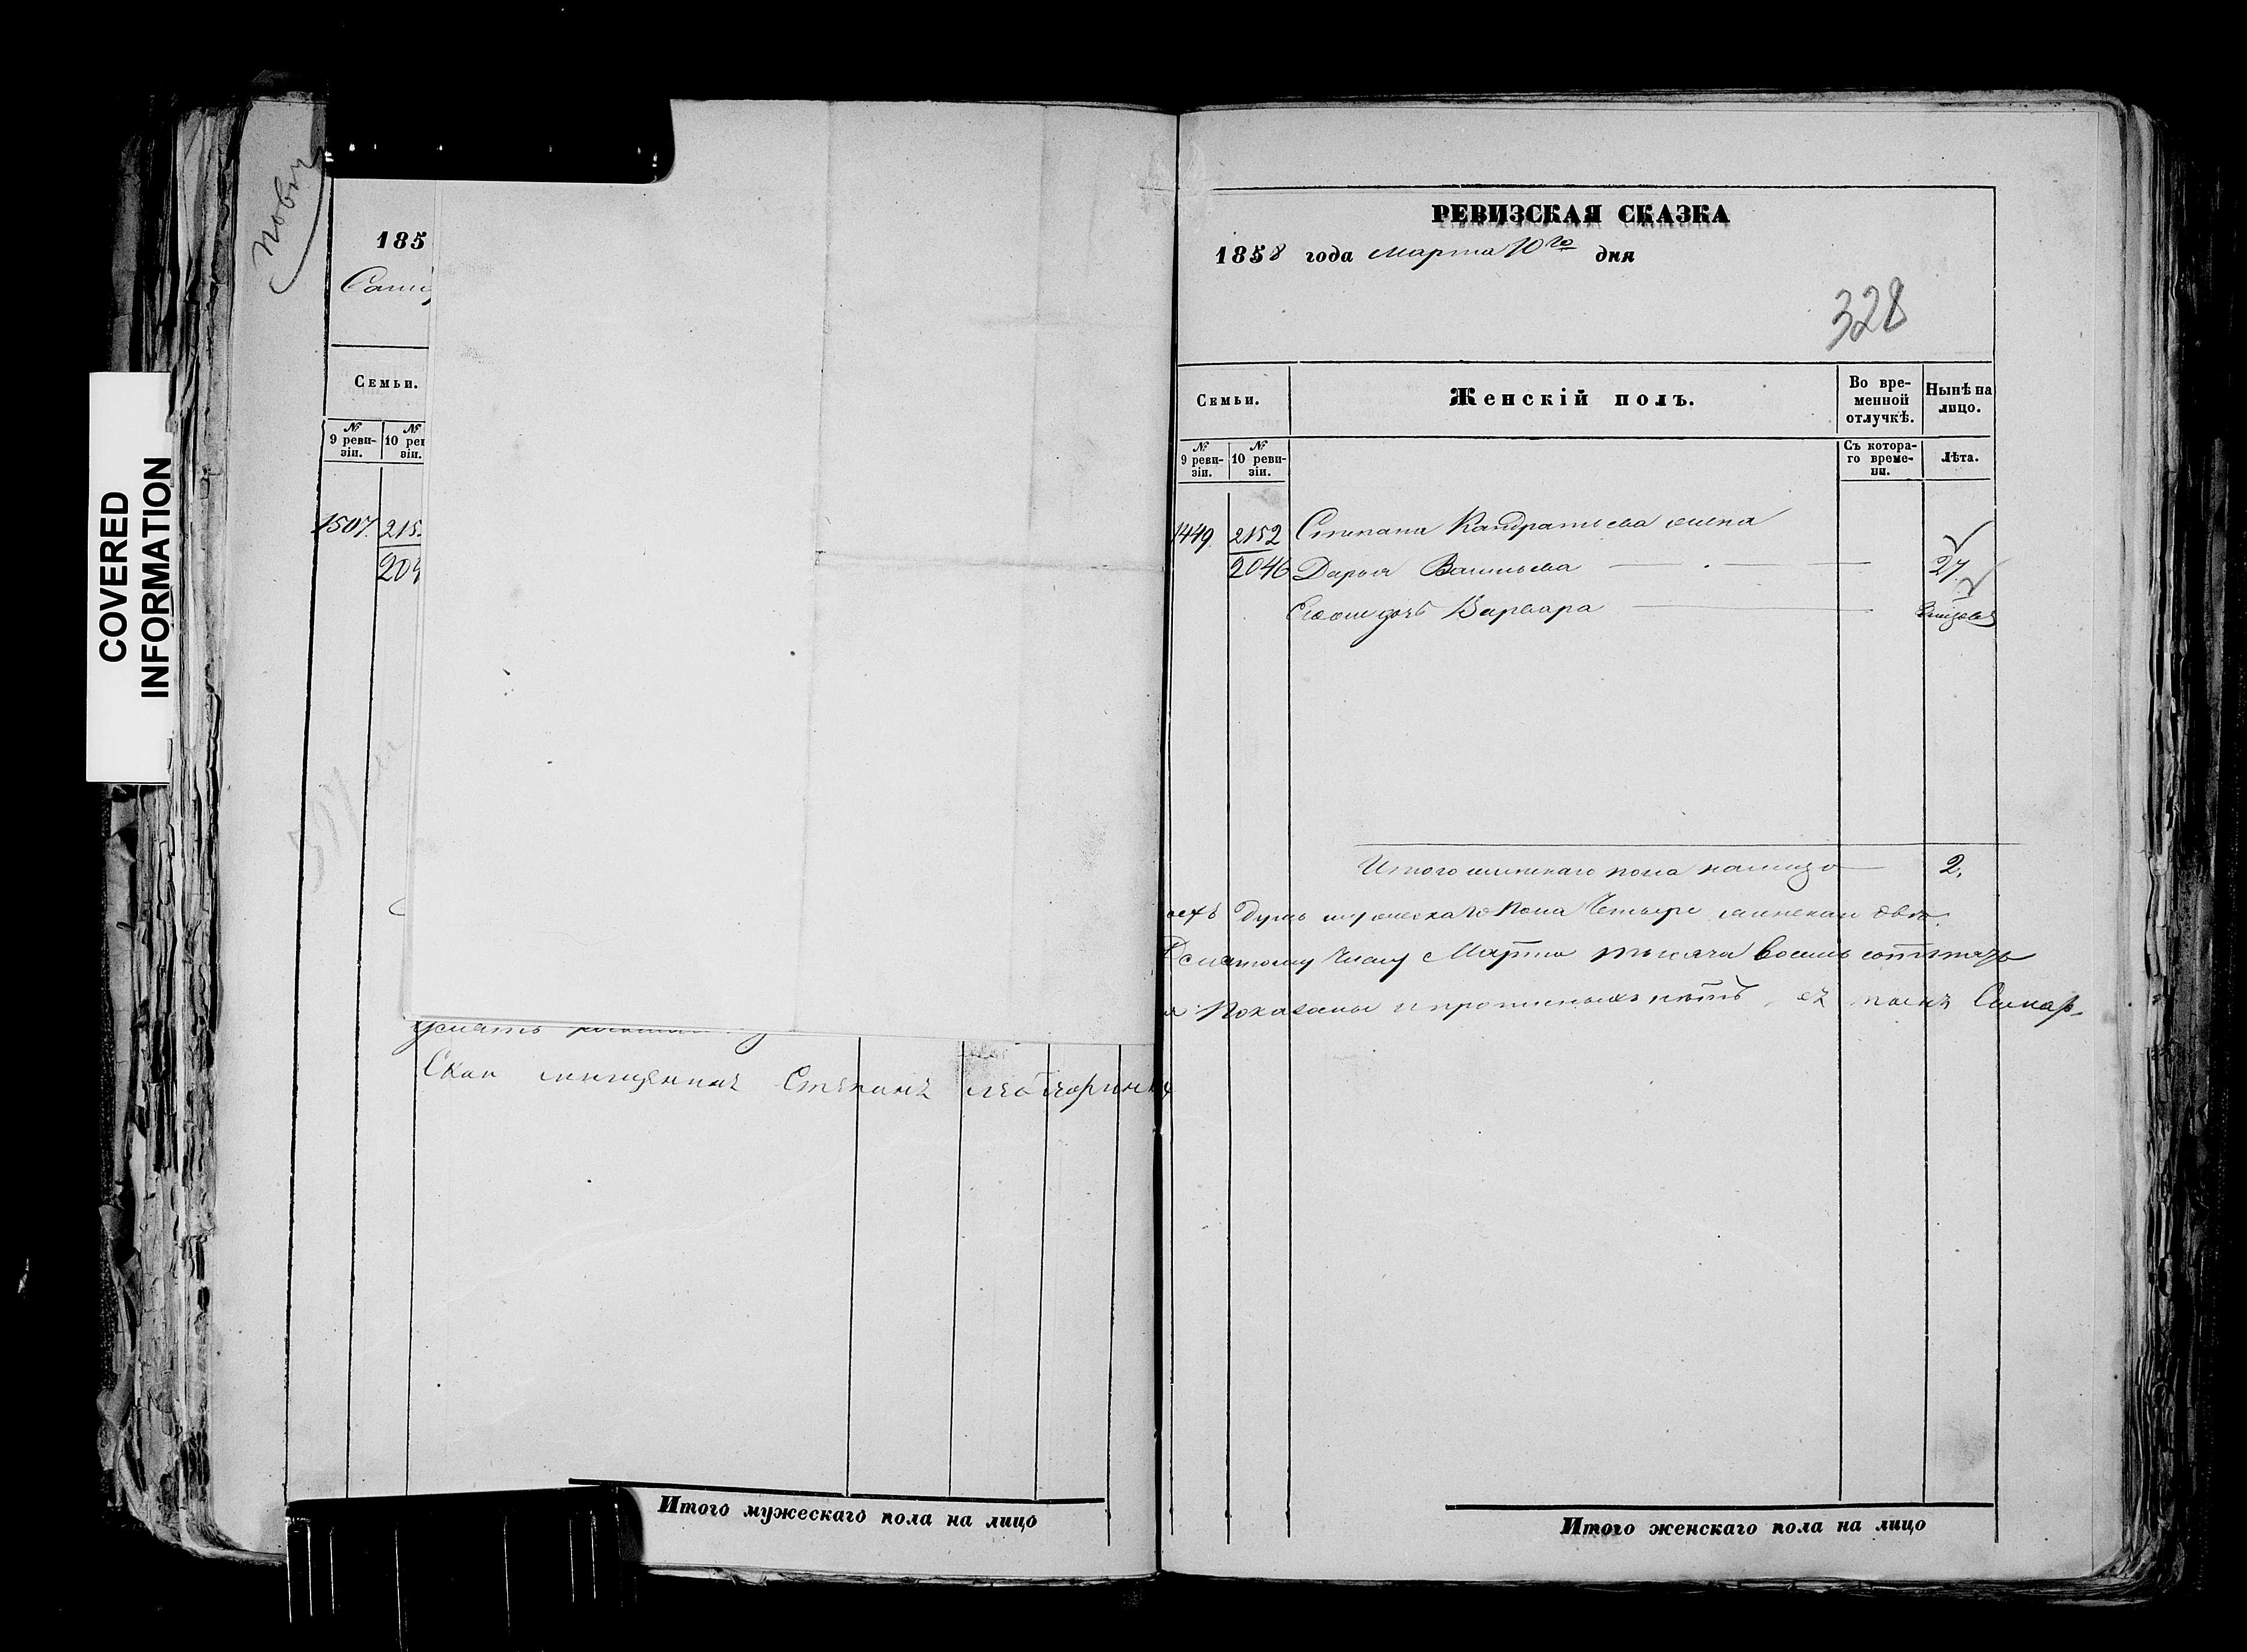 COVERED
INFORMATION
185
Семьи.
№
9 реви-
зіи.
№
10 рев
зіи.
1507. 215
204
Скай мещенинъ Степанъ
Итого мужескаго пола на лицо
РЕВИЗСКАЯ СКАЗКА
1858 года марта 10го дня
328
Семьи.
Женскій полъ.
Во вре-
менной
отлучкѣ.
Нынѣ на
лицо.
№
9 реви-
зіи.
№
10 реви-
зіи.
Съ котора-
го време-
ни.
Лѣта.
1449. 2152 Степана Кандратьева жена
2046 Дарья Васильева 27
Евоже дочь Варвара
Итого женскаго пола налицо 2.
душъ мужескаго пола Четыре женскаго двѣ
числу Марта тысяча восемь сотъ
Показаны и прописныхъ нѣтъ, въ томъ Самар-
Итого женскаго пола на лицо